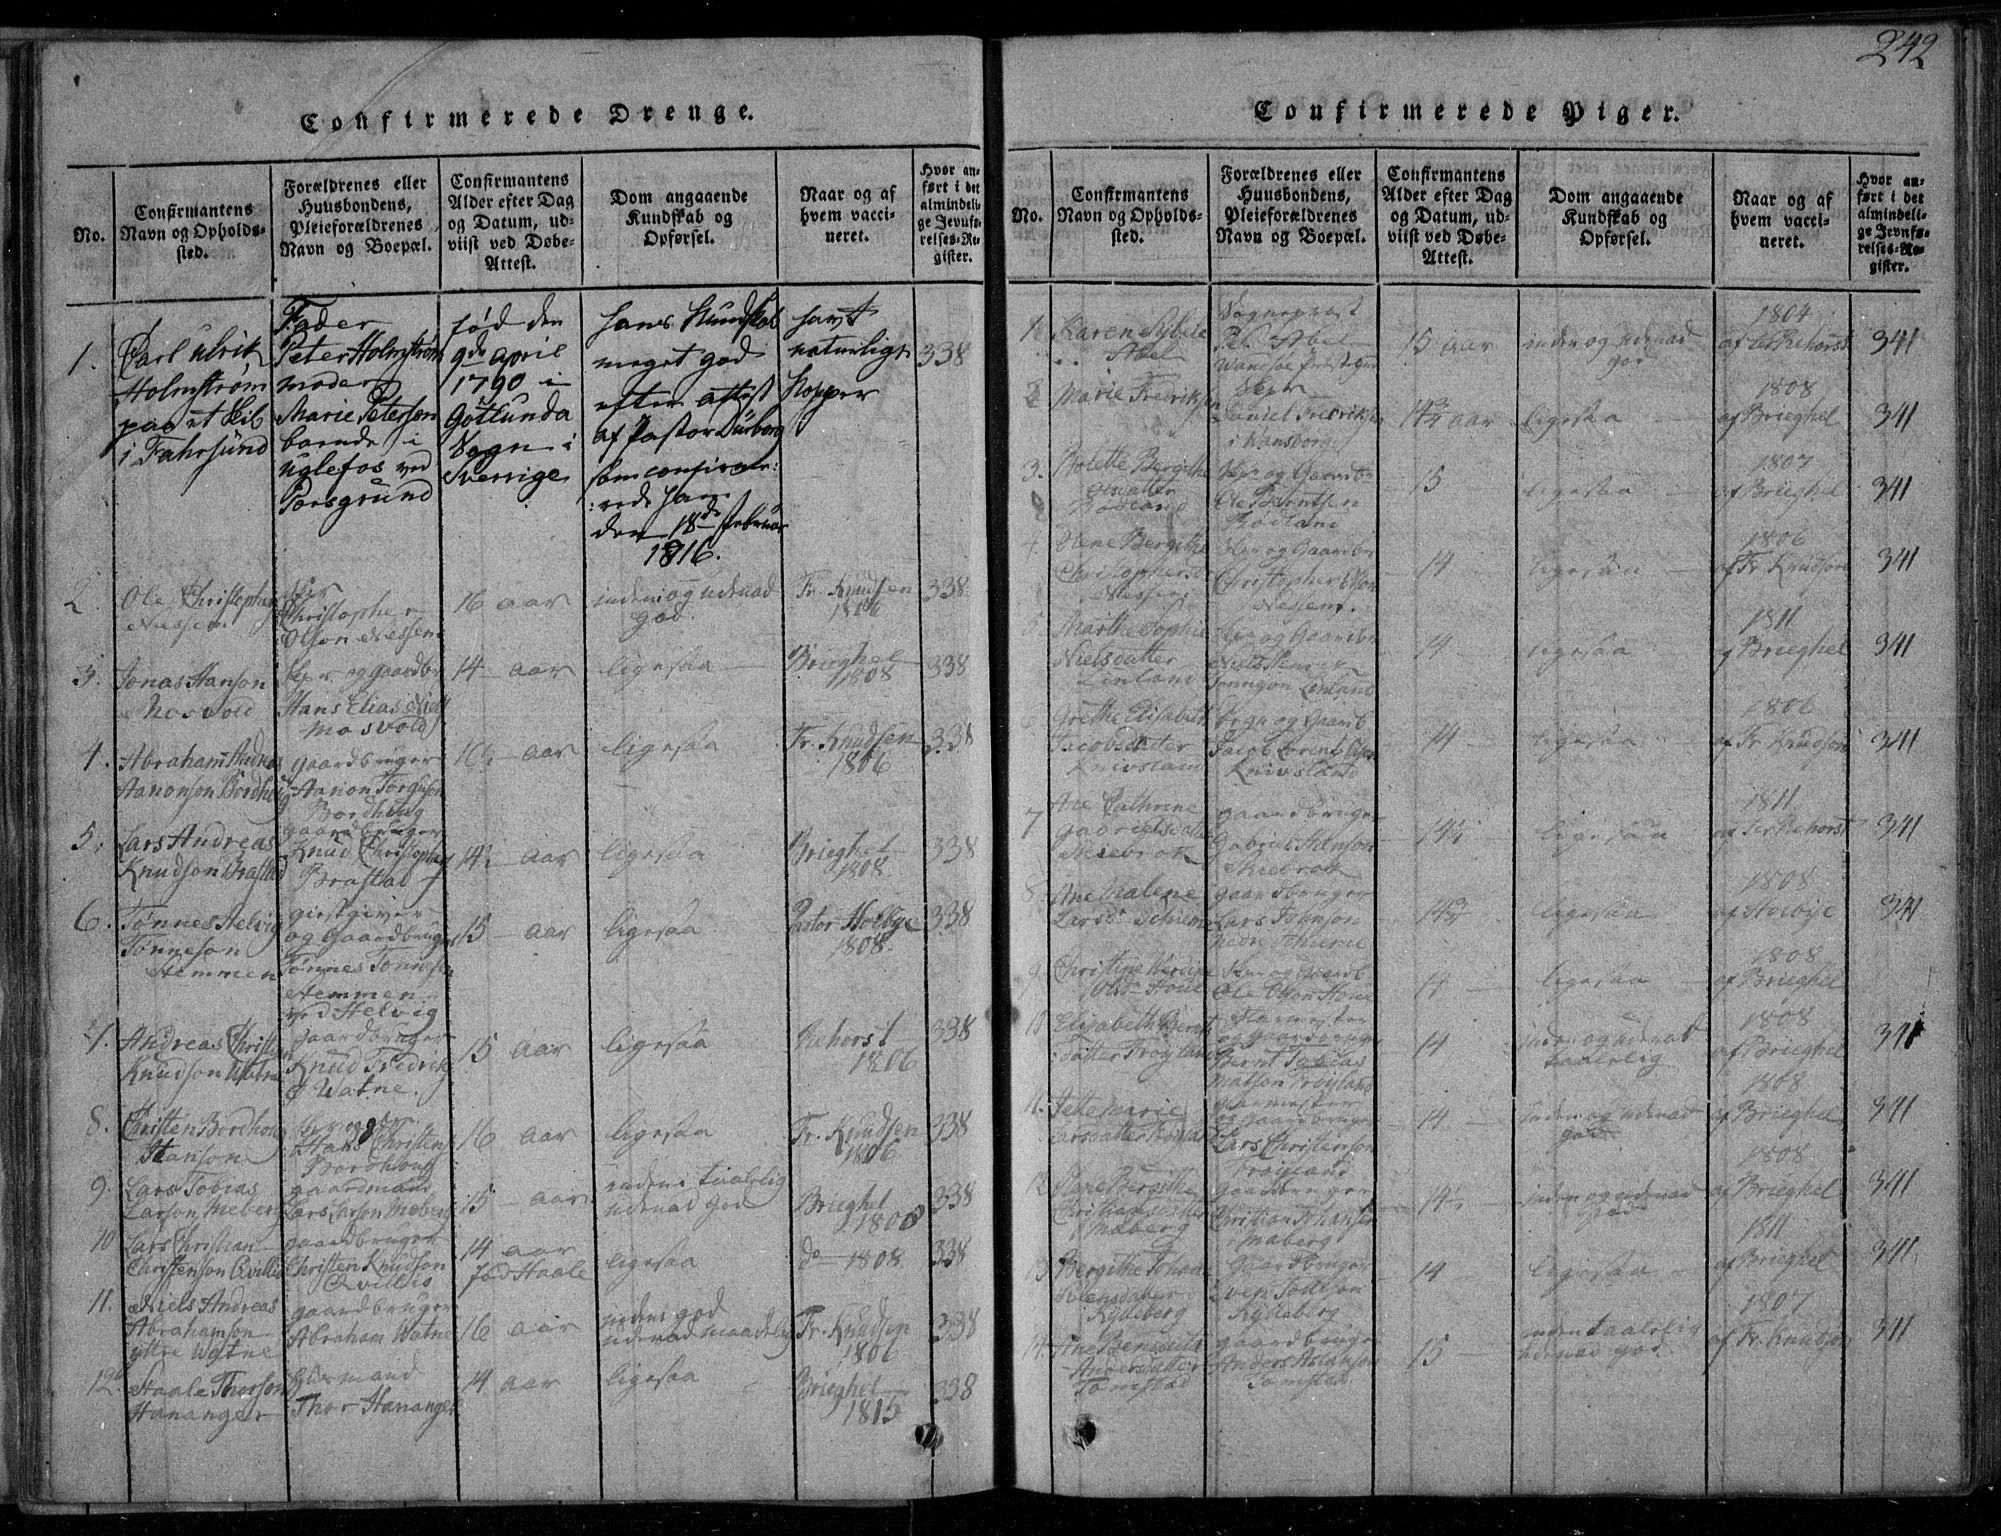 242
Confirmerede Drenge.
No.
Confirmantens
Navn og Opholds-
sted.
Forældrenes eller
Huusbondens,
Pleieforældrenes
Navn og Boepæl.
Confirmantens
Alder efter Dag
og Datum, ud-
viist ved Døbe-
Attest.
Dom angaaende
Kundskab og
Opførsel.
Naar og af
hvem vacci-
neret.
Hvor an-
ført i det
almindeli-
ge Jevnfø-
relses-Re-
gister.
1.
Carl Ulrik
Holmstrøm
paa et Skib
i Fahrsund
Fader
Peter Holmstrøm
moder
Marie Peterson
boende i
Uglefos ved
Porsgrund
fød den
9de April
1790 i
Götlunda
Sogn i
Sverrige
hans Kundskab
meget god
efter attest
af Pastor
som confirme:
:rede ham
den 18de Februar
1816.
havt
naturlige
Kopper
338
2.
Ole Christophersen
Nessen
Christopher
Olson Nessen
16 aar
inden og udenad
god
Fr. Knudsen
1806
338
3.
Jonas Hanson
Mosvold
og gaardbr
Hans Elias
Mosvold
14 aar
ligesaa
Brieghel
1808
338
4.
Abraham Andreas
Aanonson Bordhoug
gaardbruger
Aanon Torguson
Bordhoug
aar
ligesaa
Fr. Knudsen
1806
338
5.
Lars Andreas
Knudson Brastad
gaardbruger
Knud Christophers
Brastad
14½ aar
ligesaa
Brieghel
1808
338
6.
Tønnes Helvig
Tønneson
Hemmen
giestgiver
og Gaardbruger
Tønnes Tønneson
Hemmen
ved Helvig
15 aar
ligesaa
Pastor Holbye
1808
338
7.
Andreas Christian
Knudson Watne
gaardbruger
Knud Fredrik
Watne.
15 aar
ligesaa
Rehorst
1806
338
8.
Christen Bordhoug
Hanson
Hans Christens
Bordhoug
16 aar
ligesaa
Fr. Knudsen
1806
338
9.
Lars Tobias
Larson Meberg
gaardmand
Lars Larson Meberg
15 aar
inden taalelig
udenad god
Brieghel
1808
338
10
Lars Christian
Christenson Qvillis
gaardbruger
Christen Knudson
Qvillis
14 aar
ligesaa
do 1808
338
11.
Niels Andreas
Abrahamson
yttre Watne
gaardbruger
Abraham Watne
16 aar
inden god
udenad maadelig
Fr. Knudsen
1806
338
12.
Haale Thorson
Hananger
Huusmand
Thor Hananger
14 aar
ligesaa
Brieghel
1815
338
Confirmerede Piger.
No.
Confirmantens
Navn og Opholds-
sted.
Forældrenes eller
Huusbondens,
Pleieforældrenes
Navn og Boepæl.
Confirmantens
Alder efter Dag
og Datum, ud-
viist ved Døbe-
Attest.
Dom angaaende
Kundskab og
Opførsel.
Naar og af
hvem vacci-
neret.
Hvor an-
ført i det
almindeli-
ge Jevnfø-
relses-Re-
gister.
1.
Karen Sybille
Abel
Sognepræst
Abel
15 aar
inden og udenad
god
1804
af Rehorst
341
2
Marie Fredriksen
Daniel Fredriksen
14¾ aar
ligesaa
1808
af Brieghel
341
3.
Bolette Bergithe
Olsdatter
Rødland
og Gaardbr
Ole Berntsen
Rødland
15
ligesaa
1807
af Brieghel
341
4.
Olene Bergithe
Nessen
og Gaardbr
Christopher Olson
Nessen.
14
ligesaa
1806
af Fr. Knudson
341
5.
Marthe Sophie
Nielsdatter
Linland
og Gaardbr
Niels Henrik
Tønneson Linland
14
ligesaa
1811
af Brieghel
341
Grethe Elisabeth
Jacobsdatter
Knivsland
og Gaardb
Jacob Lorents Olson
Knivsland
14
ligesaa
1806
af Fr. Knudson
341
7
Ane Cathrine
Gabrielsdatter
gaardbruger
Gabriel
14½
ligesaa
1811
af Rehorst
341
8.
Ane Malene
Larsd
gaardbruger
Lars Johnson
14¾
ligesaa
1808
af Holbye
341
9.
Christine
Houe
og Gaardb
Ole Olson Houe
14
ligesaa
1808
af Brieghel
10
Elizabeth Bernt
datter Frøyland
og gaardbruger
Bernt Tobias
Matson Frøyland
14
inden og udenad
taalelig
1808
af Brieghel
341
11.
Jette Marie
Larsdatter Frøyland
og gaardbruger
Lars Christenson
Frøyland
14
inden og udenad
god
1808
af Brieghel
341
12
Bergithe
Christiansdatter
Maberg
gaardbruger
Christian Johanson
Maberg
14½
inden og udenad
god
1808
af Brieghel
341
13
Bergithe Johane
Svensdatter
Kydleberg
Gaardbruger
Sven
Kydleberg
14
ligesaa
1811
af Brieghel
341
14.
Andersdatter
Tomstad
gaardbruger
Anders Aslakson
Tomstad
15
inden taalelig
udenad god
1807
af Fr. Knudsen
341